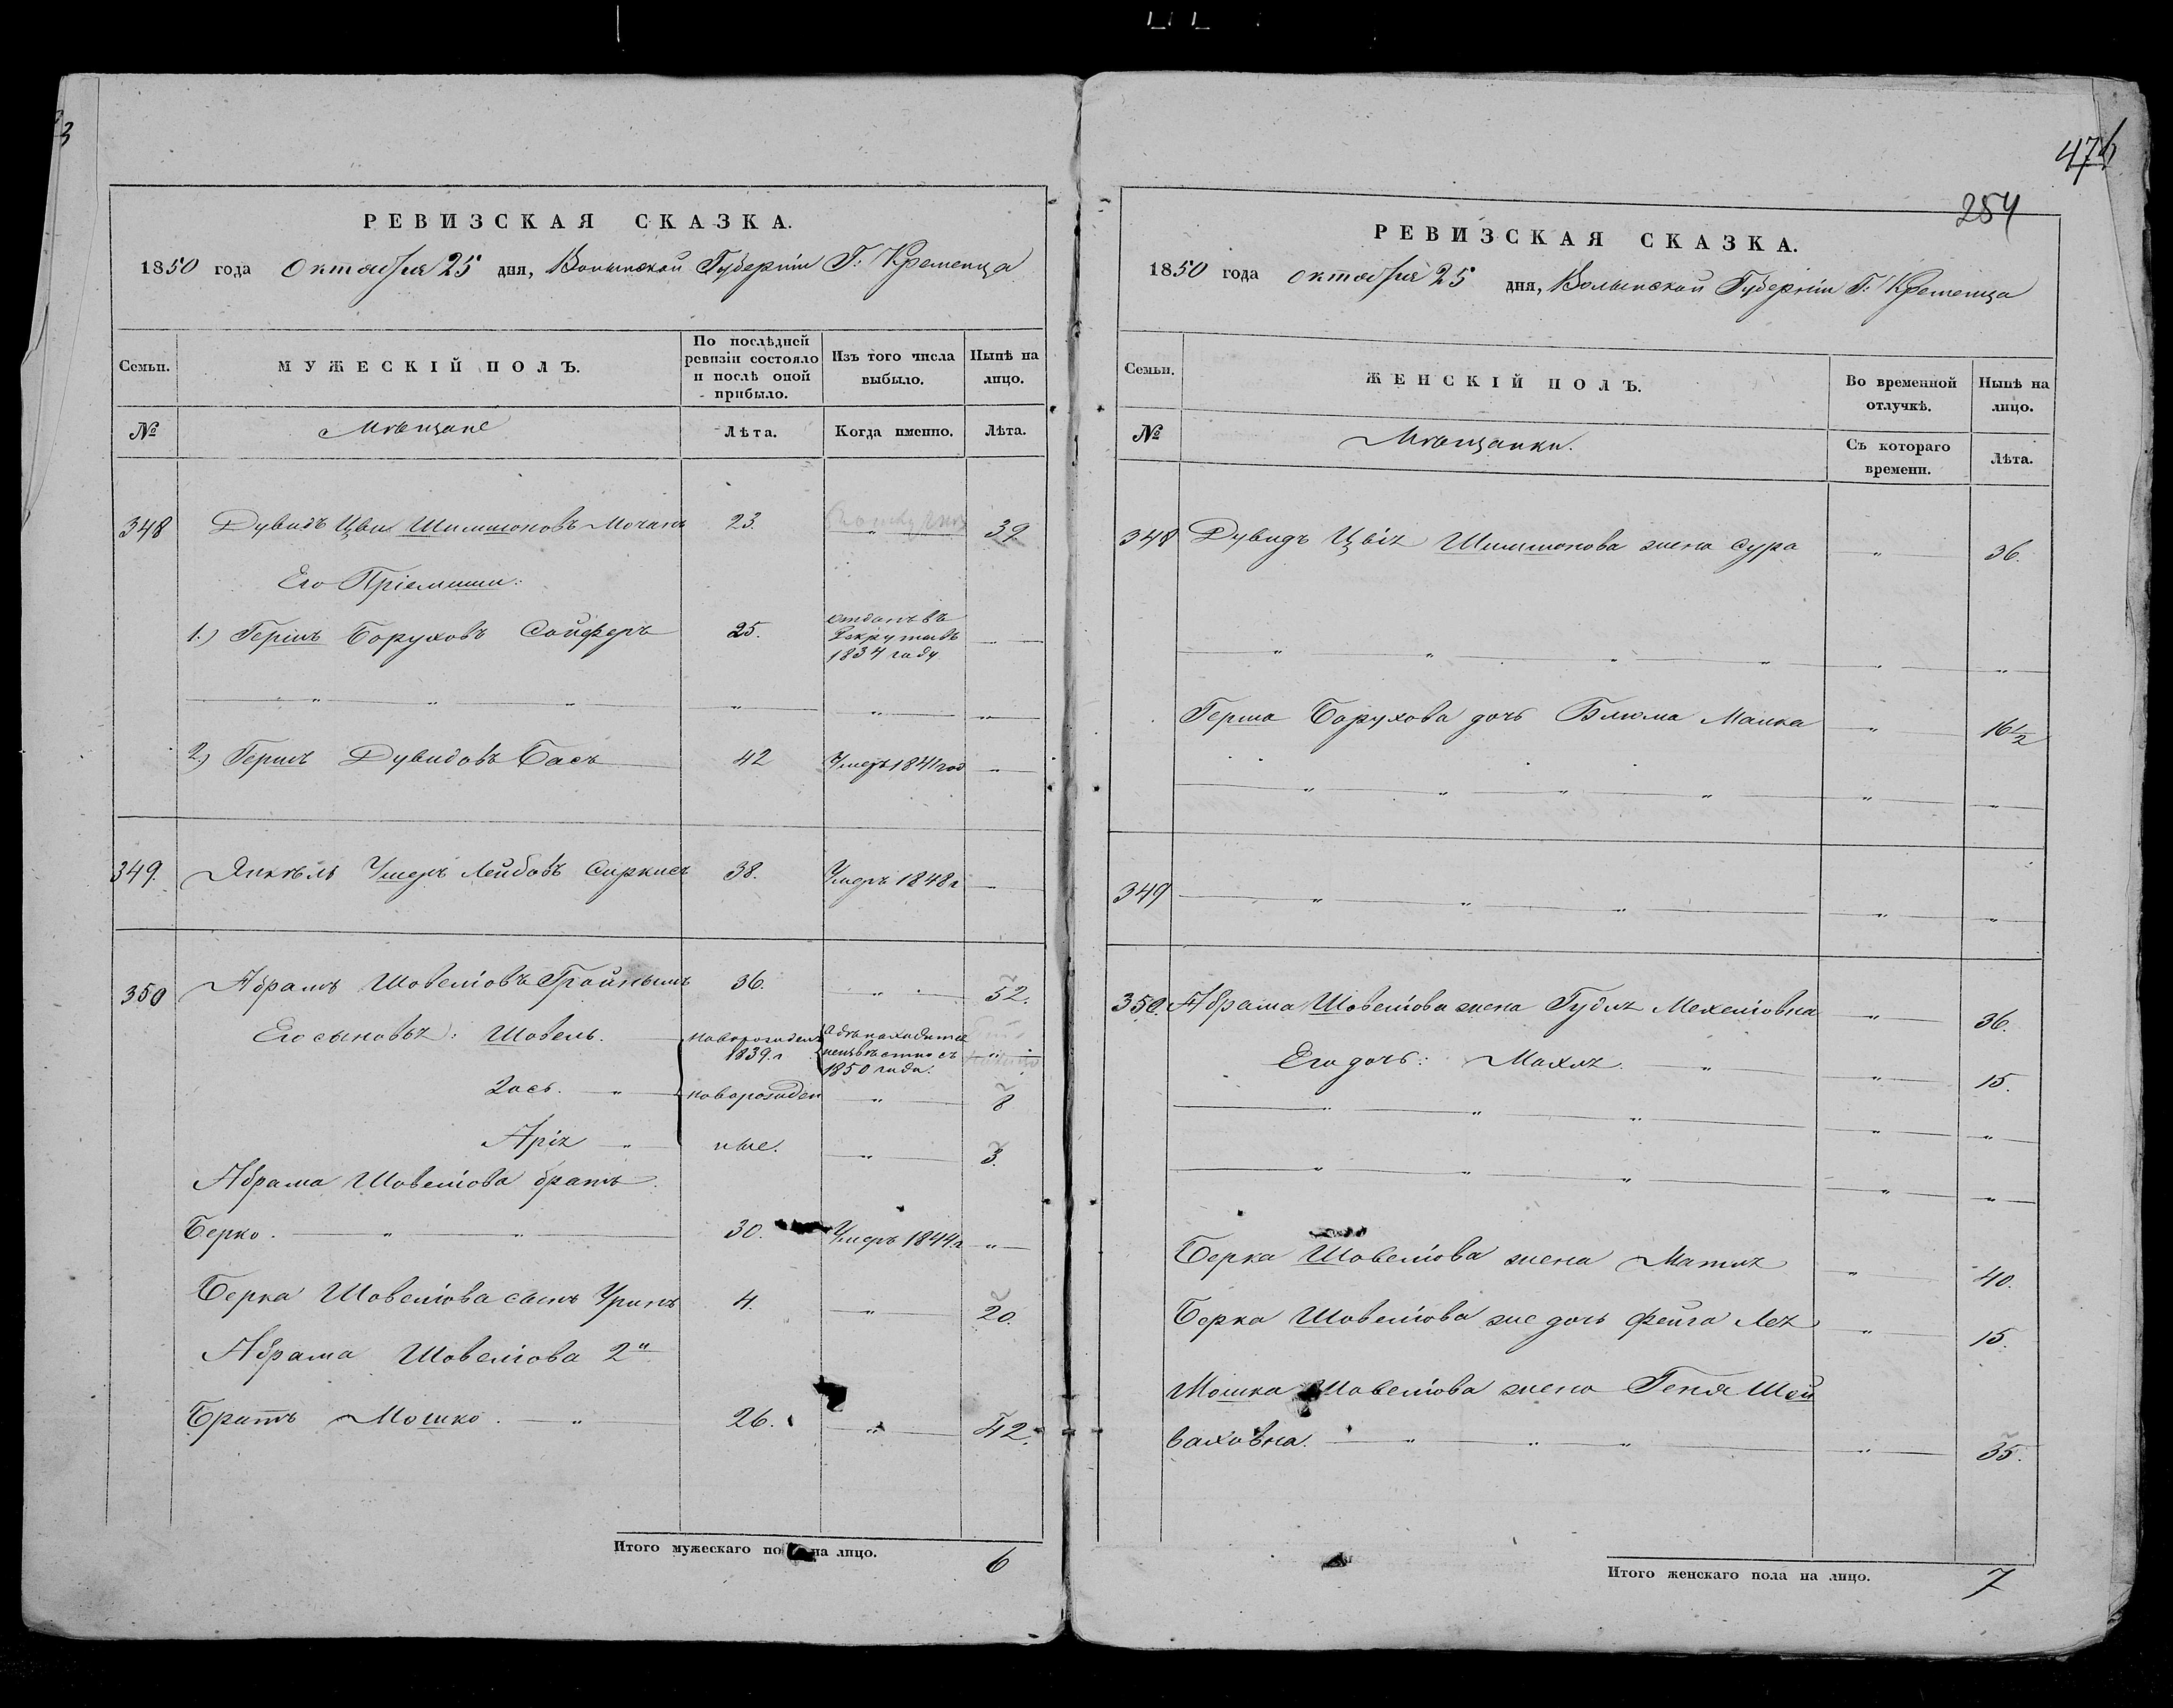 3
РЕВИЗСКАЯ СКАЗКА.
1850 года Октября 25 дня, Волынской Губерніи Г: Кременца
Семьи.
МУЖЕСКІЙ ПОЛЪ.
По послѣдней ревизіи состояло и послѣ оной прибыло.
Изъ того числа выбыло.
Нынѣ на лицо.
№
Мѣщане
Лѣта.
Когда именно.
Лѣта.
348 Дувидъ Цви Шимшоновъ Мочанъ 23. „ 39
Его Пріемыши:
1.) Гершъ Боруховъ Сойферъ 25. отданъ въ рекруты въ 1834 году
2.) Гершъ Дувидовъ Басъ 42 Умеръ 1841 год „
349. Янкель Умеръ Лейбовъ Сиркисъ 38. Умеръ 1848 г
350 Абрамъ Шовеліовъ Тройнымъ 36. „ 52.
Его сыновья: Шовель. новорожден 1839. г Гдѣ находится неизвѣстно съ 1850 года. „
Зось. „ новорожден „ 8
Арія „ ные. „ 3.
Абрама Шовеліова братъ
Берко. „ „ 30. Умеръ 1844 г „
Берка Шовеліова сынъ Уринъ 4. „ 20.
Абрама Шовеліова 2й
Братъ Мошко. „ 26. „ 42.
Итого мужескаго пола на лицо. 6
476
254
РЕВИЗСКАЯ СКАЗКА.
1850 года октября 25 дня, Волынской Губерніи Г: Кременца
Семьи.
ЖЕНСКІЙ ПОЛЪ.
Во временной отлучкѣ.
Нынѣ на лицо.
№
Мѣщанки.
Съ котораго времени.
Лѣта.
348 Дувидъ Цвія Шимшонова жена Сура „ 36.
Герша Борухова дочь Блюма Малка „ 16 1/2
349 „ „ „ „ „
350. Абрама Шовеліова жена Гудля Мехеліовна „ 36.
Его дочь: Махля. „ „ 15.
Берка Шовеліова жена Матля „ 40.
Берка Шовеліова же дочь Фейга Лея „ 15.
Мошка Шовеліова жена Геня Шей
ваховна. „ „ „ „ 35.
Итого женскаго пола на лицо. 7